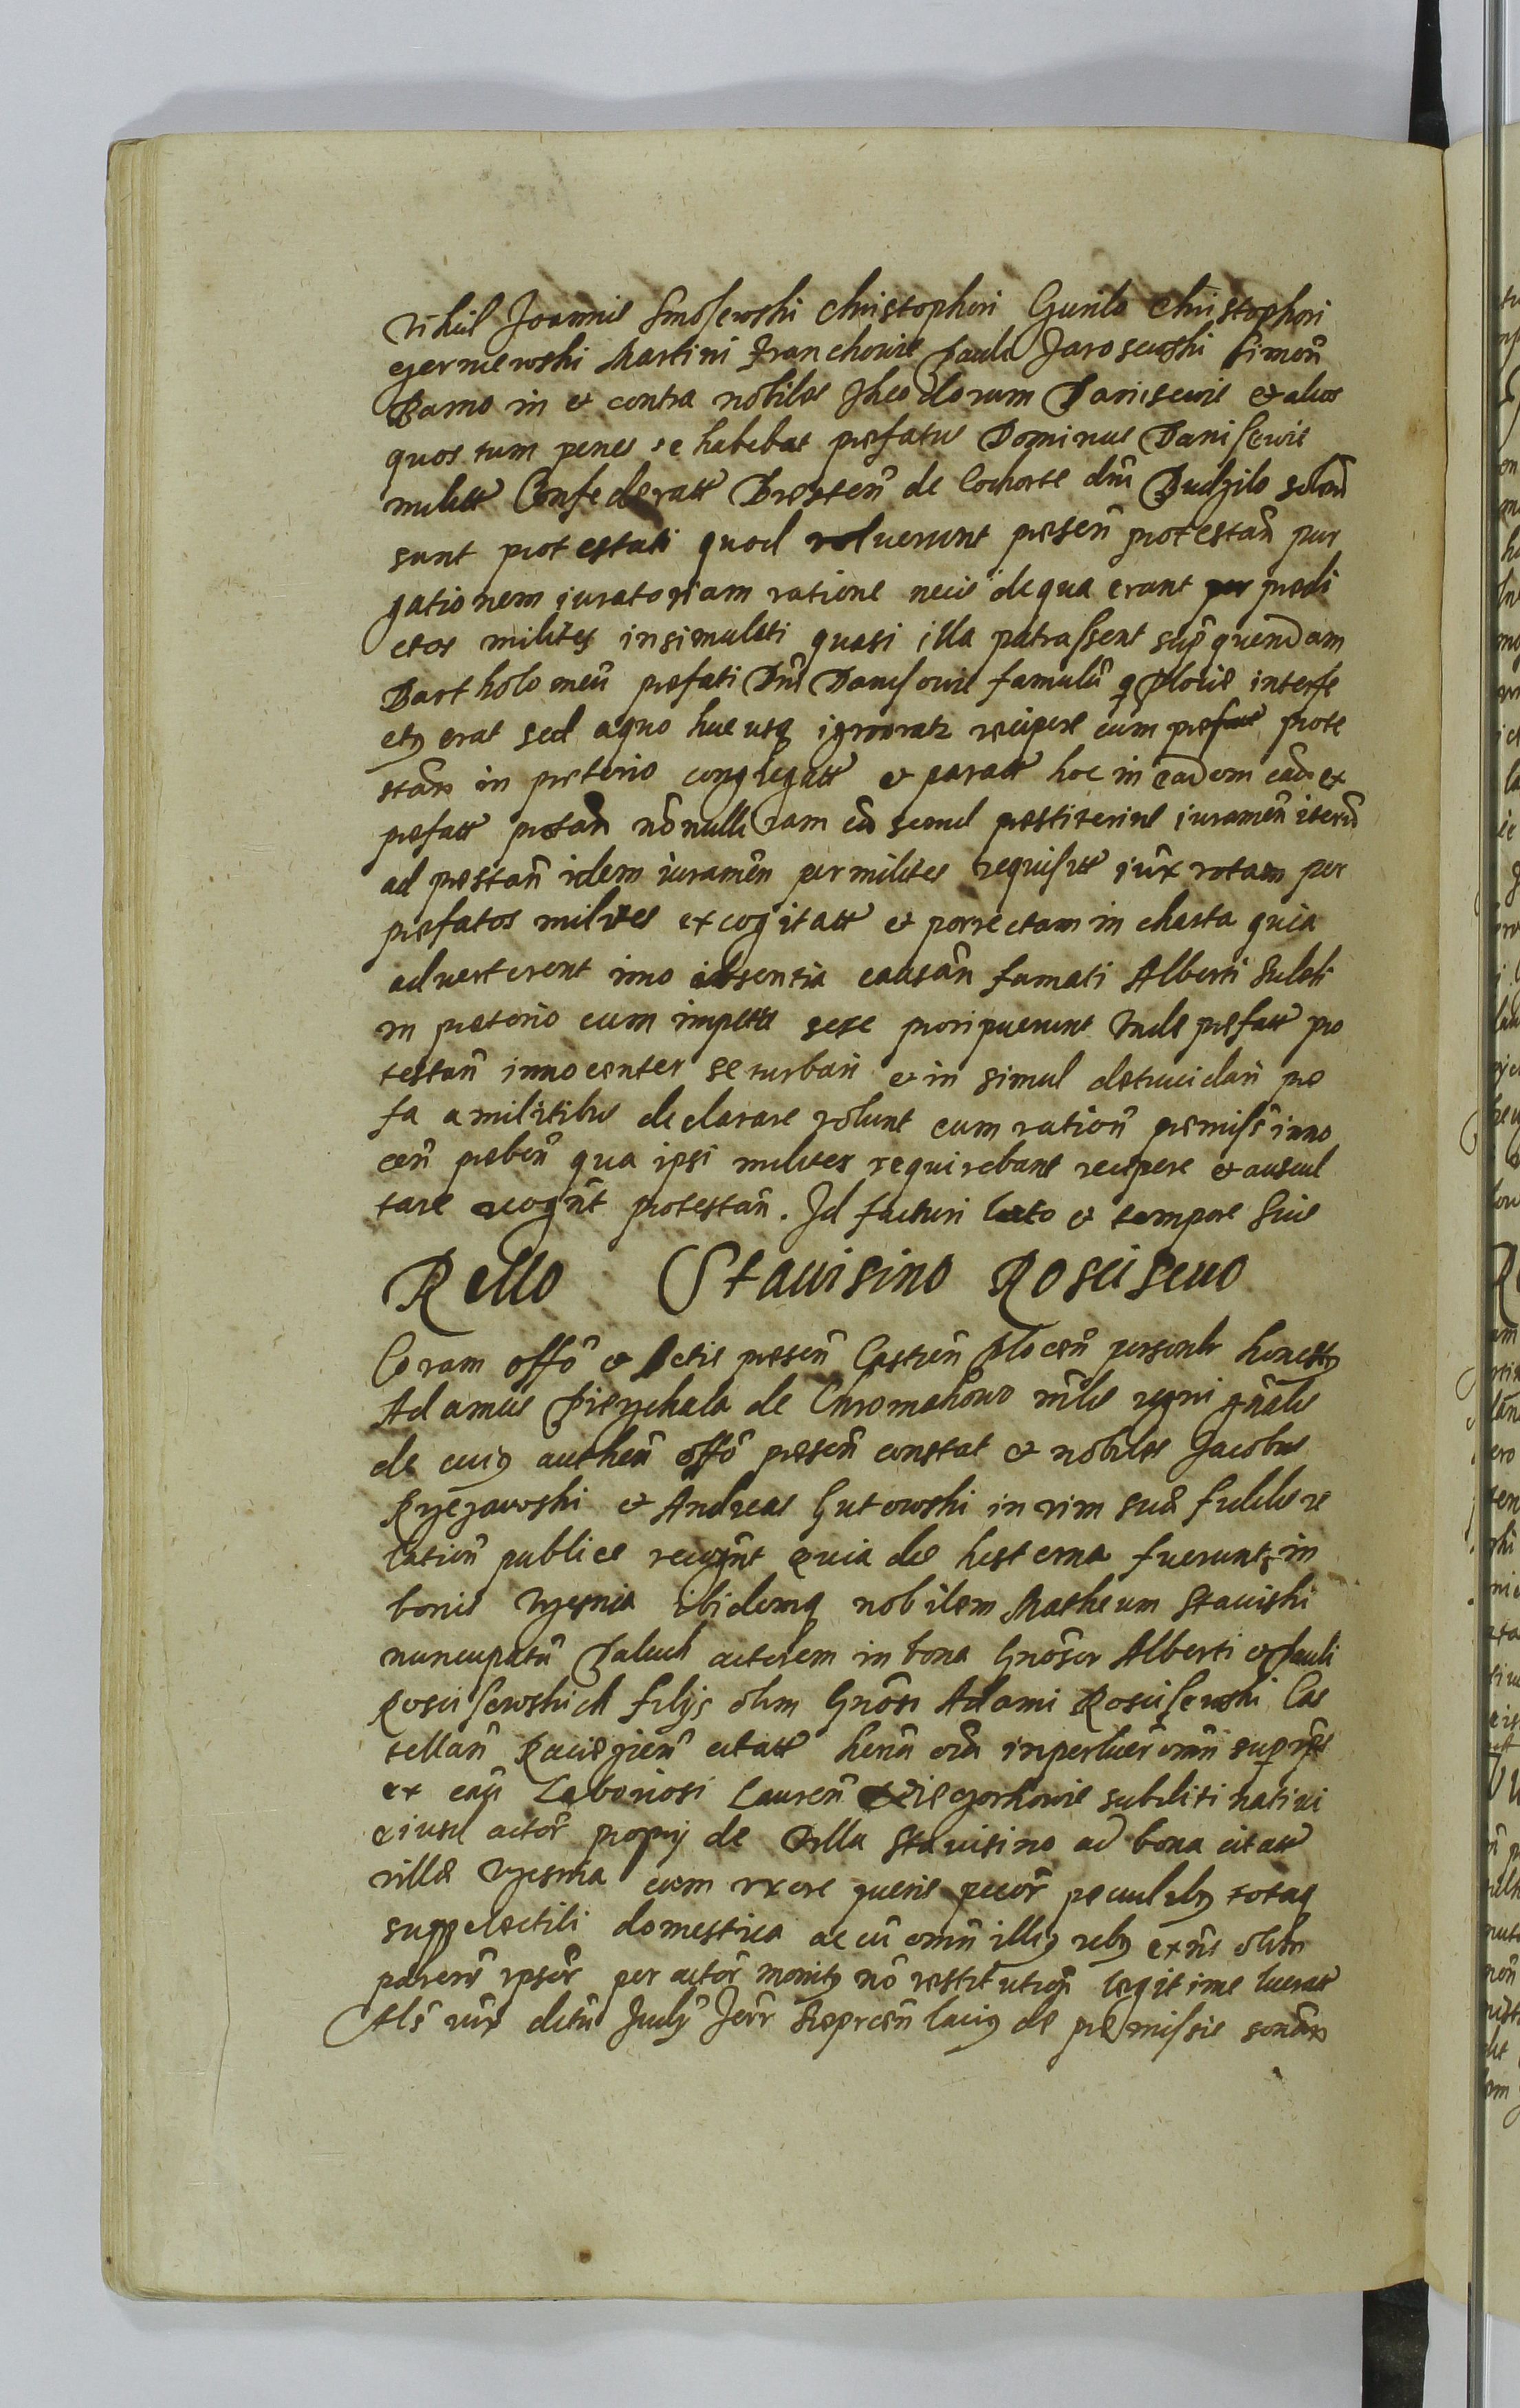 Joannis Smosewski Christophori Gurilo Christophori
Czerniewski Martini Franchowic Pauli Jarosewski Simon̄
Bamo in et contra nobiles Theodorum Danisewic et alios
quos tum penes se habebat prefatus Dominus Danisewic
milit Confederatt Bresten̄ de Cohorte dni Budzilo
sunt protestati quod voluerunt presen̄ protestan̄ pur
gationem iuratoriam ratione necis de qua erant per predi
ctos milites insimulati quasi illa patrassent sup quendam
Bartholomeū prefati Dni Danisowic famulū q Plocie interfe
ct9 erat sed a quo huc usq ignoratr recipere cum prote
stan̄ in pretorio congregatt et paratt hoc in eadem cā ex
prefatt protan̄ nōnulli iam eā semel prestiterint iuramen̄ iterū
ad prestan̄ idem iuramen̄ per milites requisitt iux rotam per
prefatos milites excogitatt et porrectam in charta quia
adverterent imo absentia causan̄ famati Alberti
in pretorio cum impetu sese proripuerunt Inde prefatt pro
testan̄ innocenter se turbari et in simul detrucidari pre
fa a militibus declarare volunt cum ration̄ premiss inno
cen̄ preben̄ qua ipsi milites requirebant recipere et auscul
tare recognt protestan̄. Id facturi loco et tempore suis
Rello Stawisino Roscisewo
Coram offō et Actis presen̄ Castren̄ Plocen̄ personlr honest9
Adamus Pierzchala de Chromakowo mlis regni gnalis
de cui9 authen̄ offō presen̄ constat et nobiles Jacobus
Ryzezawski et Andreas Gutowski in vim suæ fidelis re
lation̄ publice recognt quia die hesterna fuerunt in
bonis ibidemq nobilem Matheum Stawiski
nuncupatū Paluch actorem in bona Gnōsor Alberti et Pauli
Roscisewskich filijs olim Gnōsi Adami Roscisewski Cas
tellan̄ Raciązien̄ citatt
ex cau Laboriosi Lauren̄ subditi nativi
eiusd actōr proprij de Villa Stawisino ad bona citatt
villæ cum uxore pueris pecōr peculib9 totaq
suppelectili domestica ac cū omn illi9 reb9 exnc olim
paren̄ ipsōr per actōr monit9 nō restitution̄ legitime
Als iux dictū Judij Terr Sieprcen̄ laci9 de premissis sonan̄